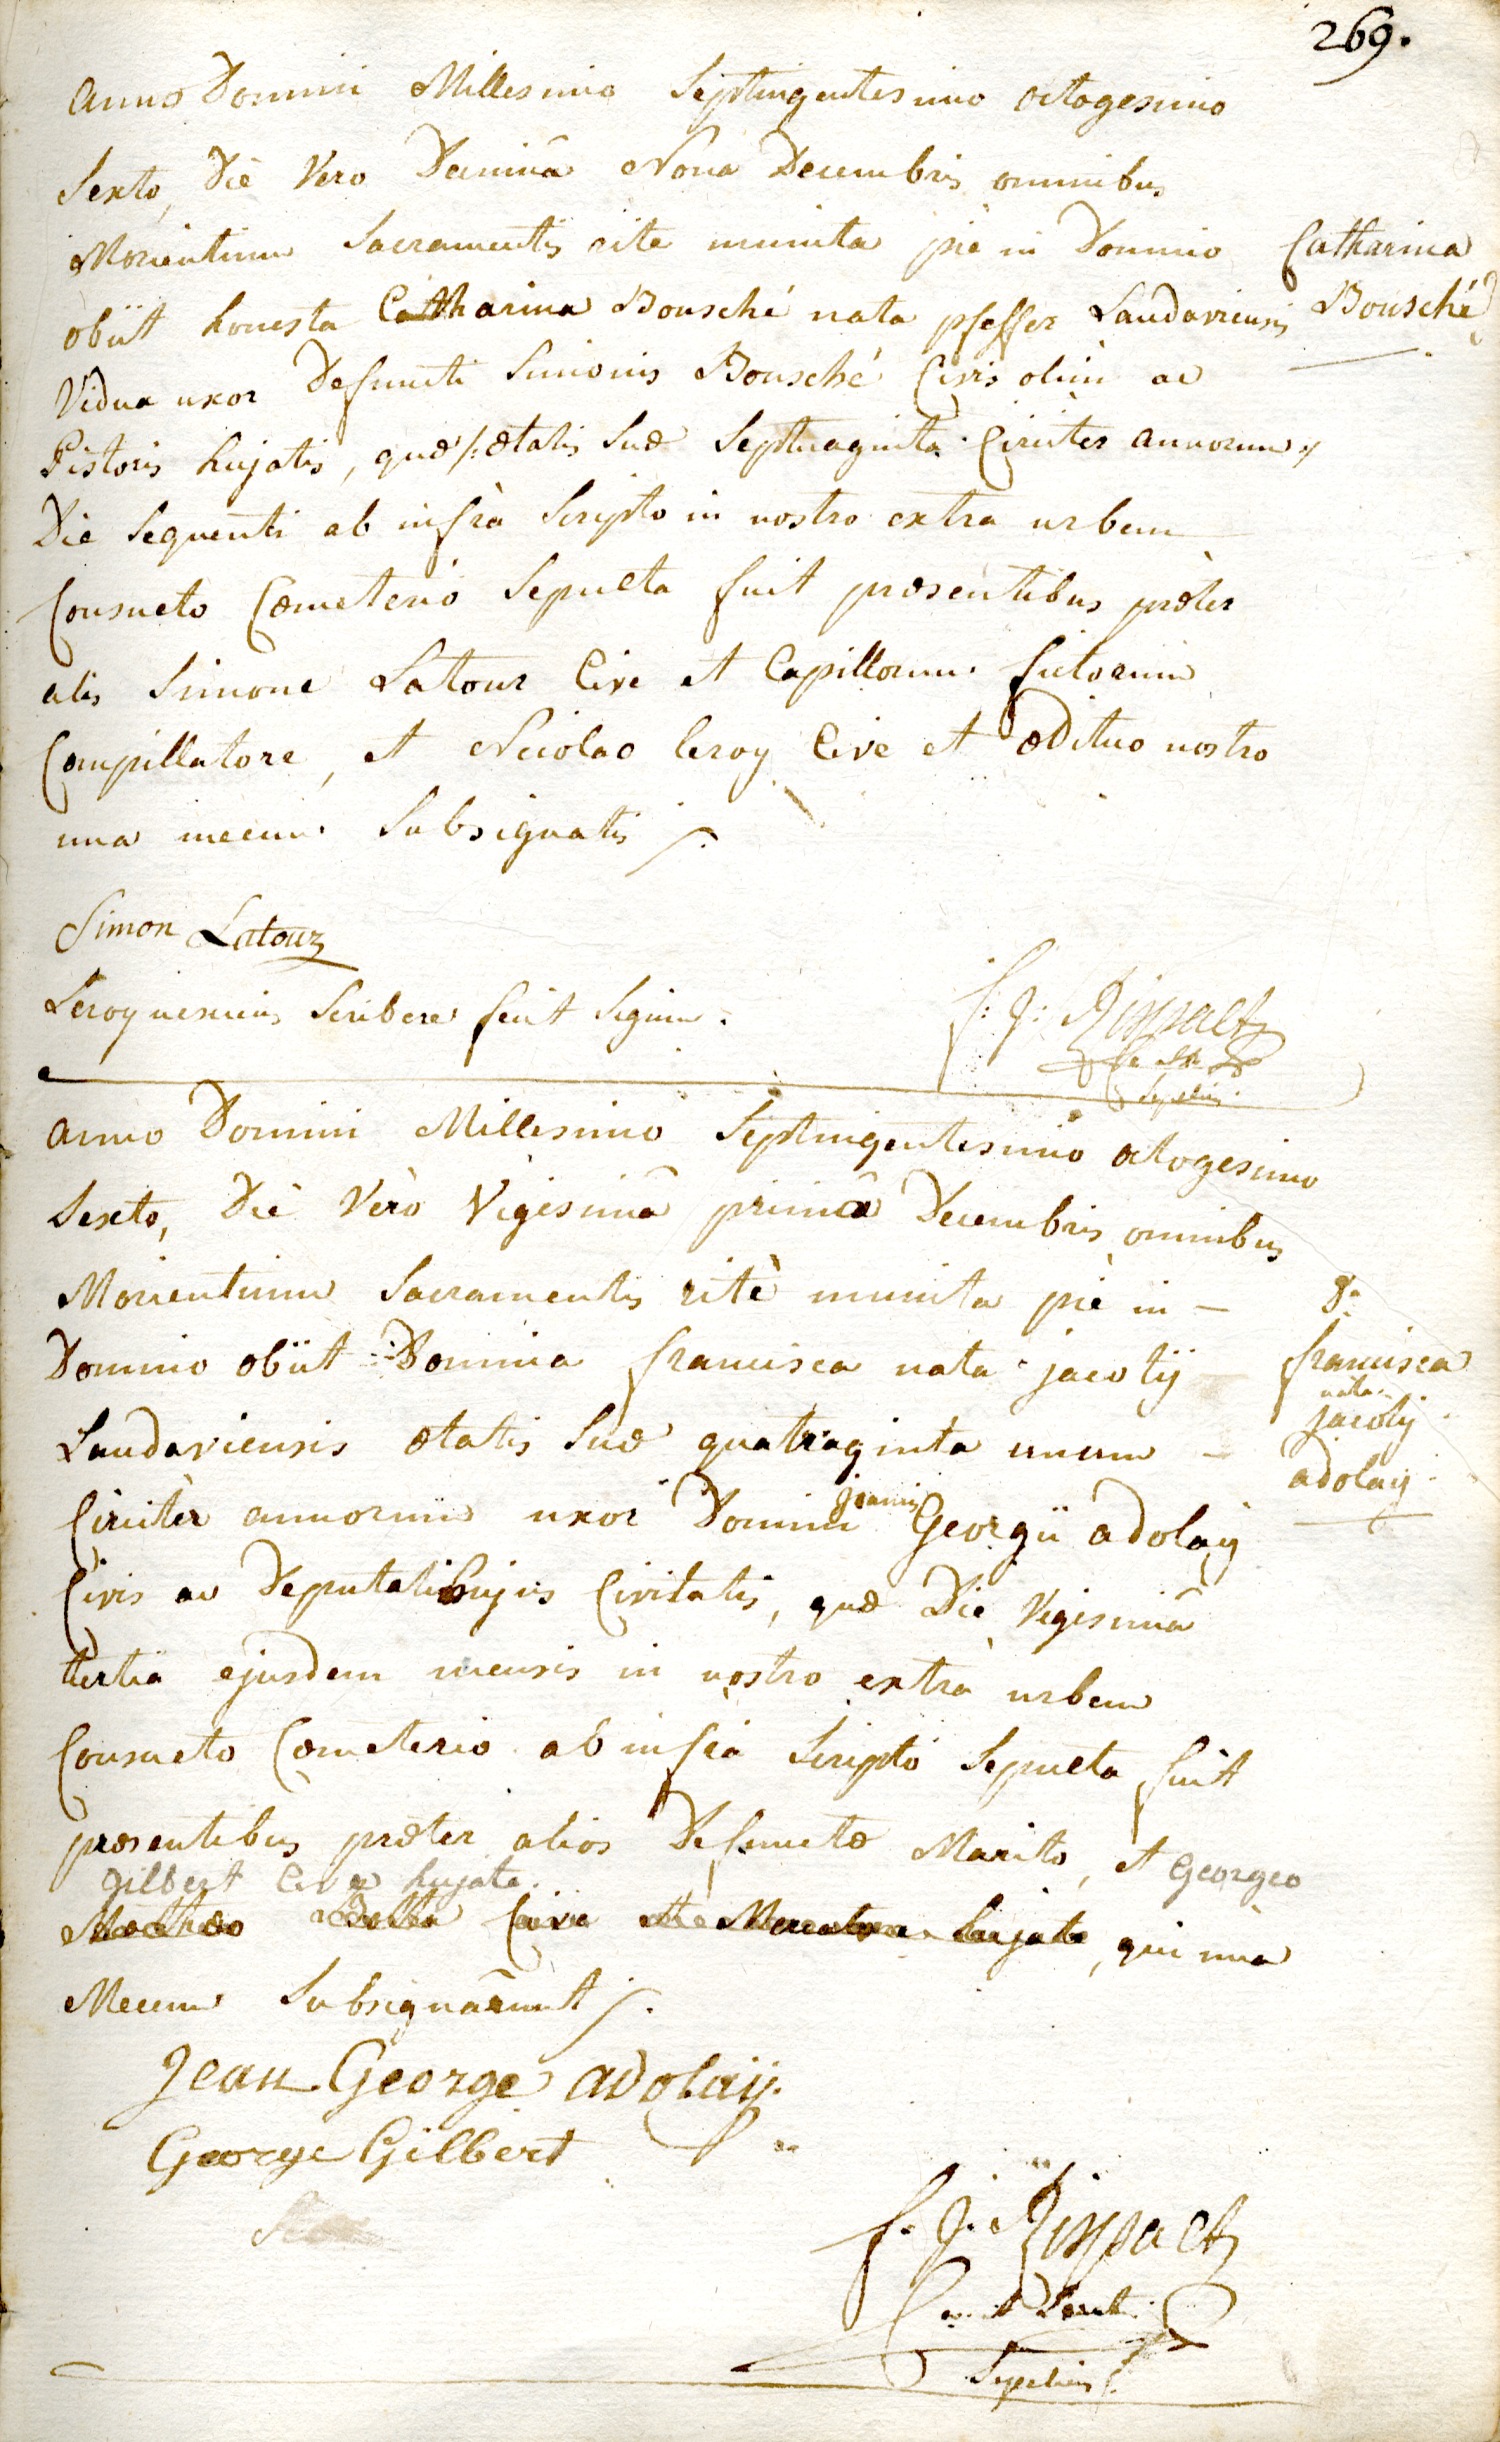 269.
Anno Domini Millesimo Septingentesimo octogesimo
Sexto, Diè Vero Decimâ Nona Decembris omnibus
Morientium Sacramentis rite munita piè in Domino
obiit honesta Catharina Bousché nata pfeffer Landaviensis
Vidua uxor Defuncti Simonis Bousché Civis olim ac
Pistoris hujatis, quæ /: ætatis Suæ Septuaginta Circiter annorum :/
Die Sequenti ab infrà Scripto in nostro extra urbem
Consueto Cœmeterio Sepulta fuit præsentibus præter
alis Simone Latour Cive et Capillorum fictorum
Compillatore, et Nicolao leroy Cive et ædituo nostro
una mecum Subsignatis /.
Catharina
Bousché
Simon Latour
Leroy nescius Scribere fecit Signum.
f: J: Rinpaelt
Sepeliens
Anno Domini Millesimo Septingentesimo octogesimo
Sexto, Diè Verò Vigesimâ primâ Decembris omnibus
Morientium Sacramentis ritè munita piè in -
Domino obiit Domina francisca nata jacotij
Landaviensis ætatis Suæ quatraginta unum -
Circitèr annorum uxor Domini Joannis Georgii adolaÿ
Civis ac Deputati hujus Civitatis, quæ Die Vigesimâ
tertiâ ejusdem mensis in nostro extrà urbem
Consueto Cœmeterio ab infrà Scripto Sepulta fuit
præsentibus præter alios Defunctæ Marito, et Georgeo
Gilbert Cive hujate.
Cive hujate, qui una
Mecum Subsignârunt /.
francisca
nata
jacotij
adolaij
Jean George adolaij.
George Gilbert
f. J. Rinpaelt
Sepeliens